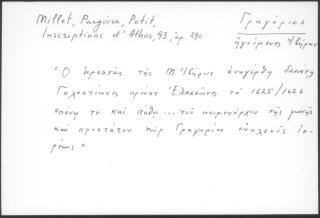 Millet, Pargoire, Petit,
Inscriptions d'Athos, 93, ἀρ. 290
Γρηγόριος
ἡγούμενος Ἰβήρων
Ὁ ἀρσανᾶς τῆς Μ. Ἰβήρων ἀνηγέρθη δαπάνῃ
Γαλακτίωνος πρώην Ἐλασσῶνος τὸ 1625/1626
"πόνῳ τε καὶ πόθῳ... τοῦ ποιμενάρχου τῆς μονῆς
καὶ προστάτου κὺρ Γρηγορίου εὐκλεοῦς ἱε-
ρέως"